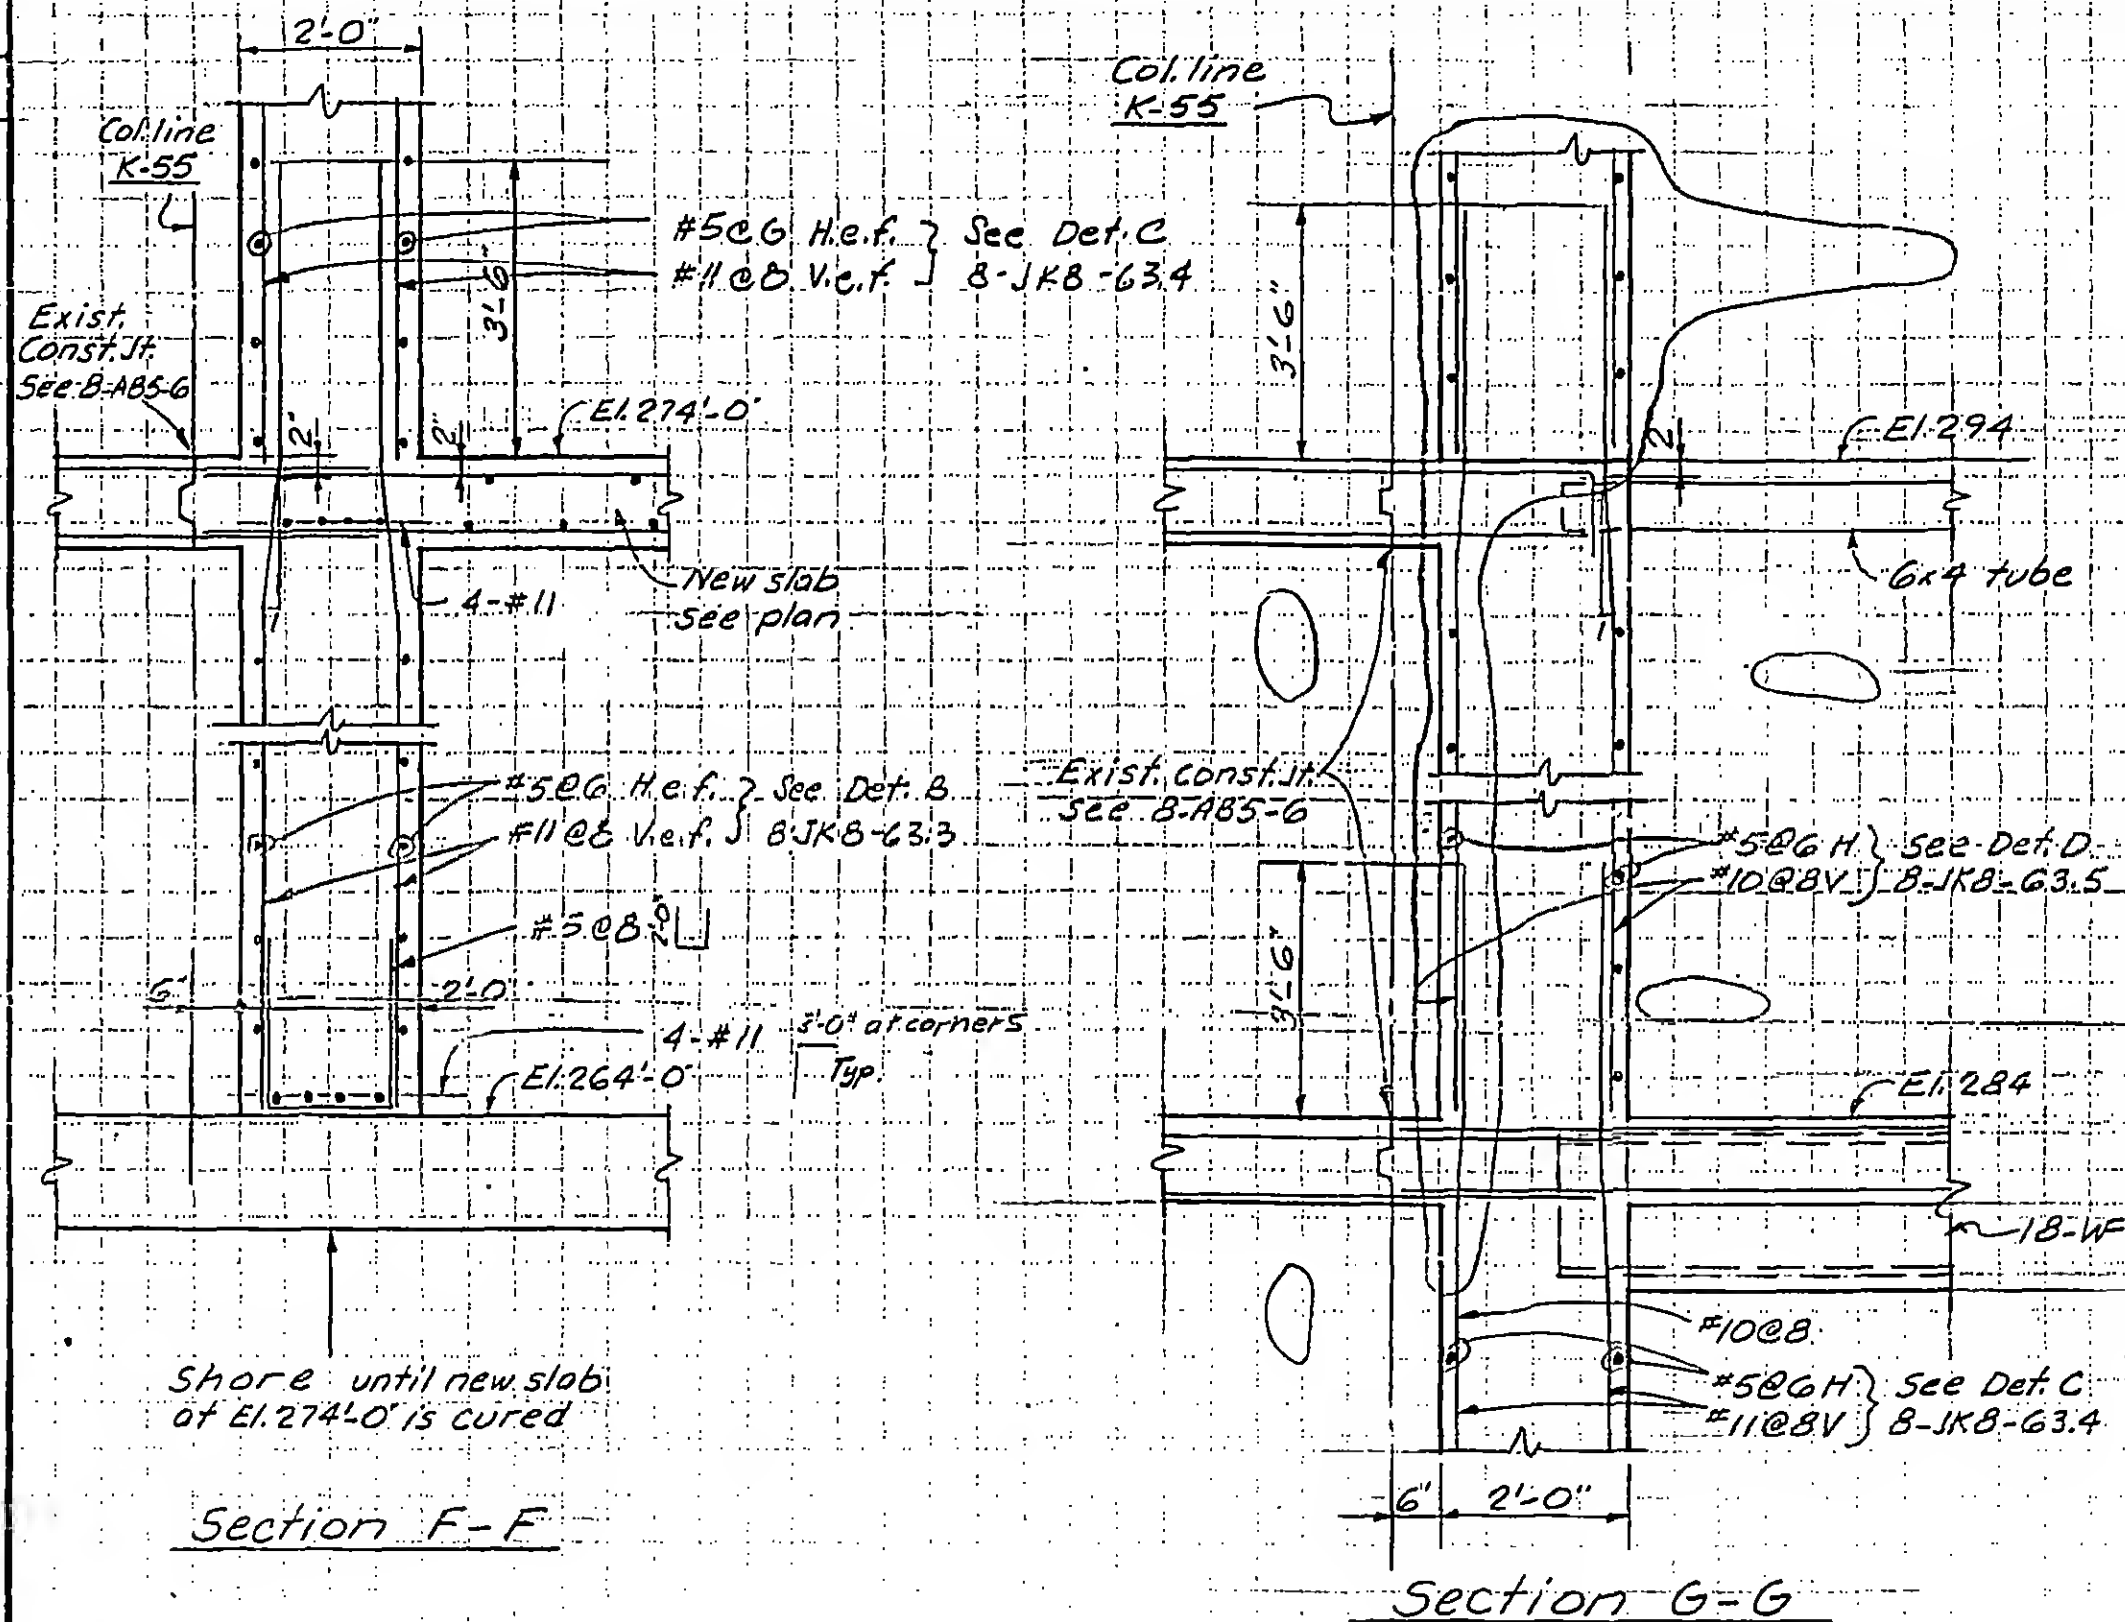 2'-0"
Col. line
K-55
#5@6 H.e.f. } See Det. C
#11@8 V.e.f. } 8-JK8-63.4
3'-6"
Exist.
Const. Jt.
See 8-AB5-6
2"
2"
El. 274'-0"
New slab
See plan
4-#11
1
#5@6 H.e.f. } See Det. B
#11@8 V.e.f. } 8-JK8-63.3
#5@8 2'-0"
6"
2'-0"
4-#11
3'-0" at corners
Typ.
El. 264'-0"
Shore until new slab
at El. 274'-0" is cured
Section F-F
Col. line
K-55
3'-6"
2"
El. 294
6x4 tube
1
Exist. Const. Jt.
See 8-AB5-6
#5@6 H } See Det. D
#10@8V } 8-JK8-63.5
3'-6"
El. 284
18-WF
#10@8
#5@6 H } See Det. C
#11@8V } 8-JK8-63.4
6"
2'-0"
Section G-G